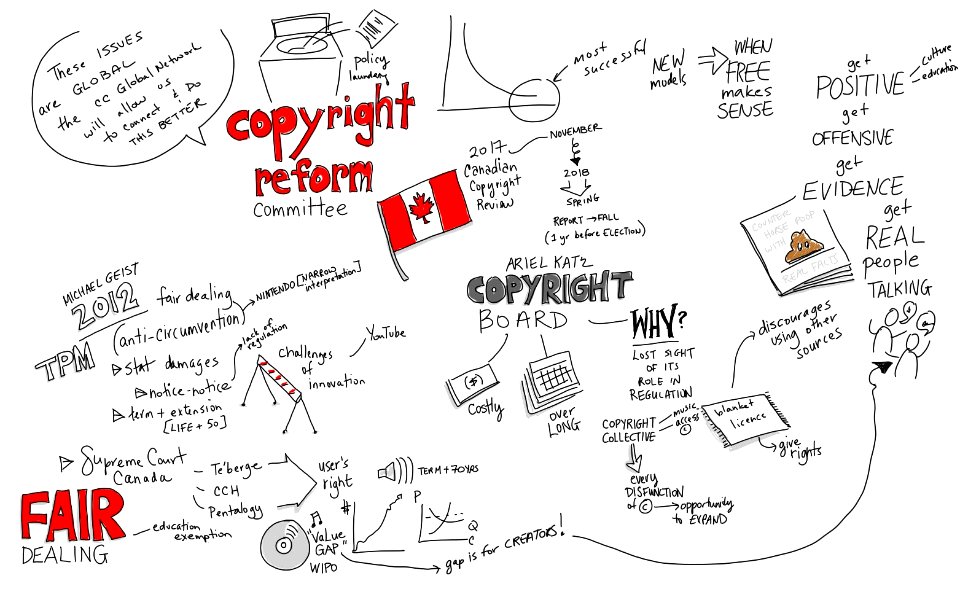 These ISSUES
are GLOBAL
the CC Global Network
will allow us
to connect & DO
THIS BETTER
policy
laundering
copyright
reform
committee
most
successful
NEW
models
WHEN
FREE
makes
SENSE
get
POSITIVE
culture
education
get
OFFENSIVE
get
EVIDENCE
get
REAL
people
TALKING
COUNTER
HORSE POOP
WITH
REAL FACTS
2017
Canadian
Copyright
Review
NOVEMBER
2018
SPRING
REPORT → FALL
(1 yr before ELECTION)
MICHAEL GEIST
2012
TPM
fair dealing
(anti-circumvention)
NINTENDO [NARROW
interpretation]
stat damages
notice-notice
lack of
regulation
term + extension
[LIFE + 50]
challenges
of
innovation
YouTube
ARIEL KATZ
COPYRIGHT
BOARD
($)
costly
over
LONG
WHY?
LOST SIGHT
OF ITS
ROLE IN
REGULATION
COPYRIGHT
COLLECTIVE
music
access
©
blanket
licence
discourages
using other
sources
give
rights
every
DISFUNCTION
of © → opportunity
to EXPAND
Supreme Court
Canada
Te'berge
CCH
Pentalogy
user's
right
FAIR
DEALING
education
exemption
TERM + 70YRS
"VaLue
GAP"
WIPO
#
P
Q
C
gap is for CREATORS!